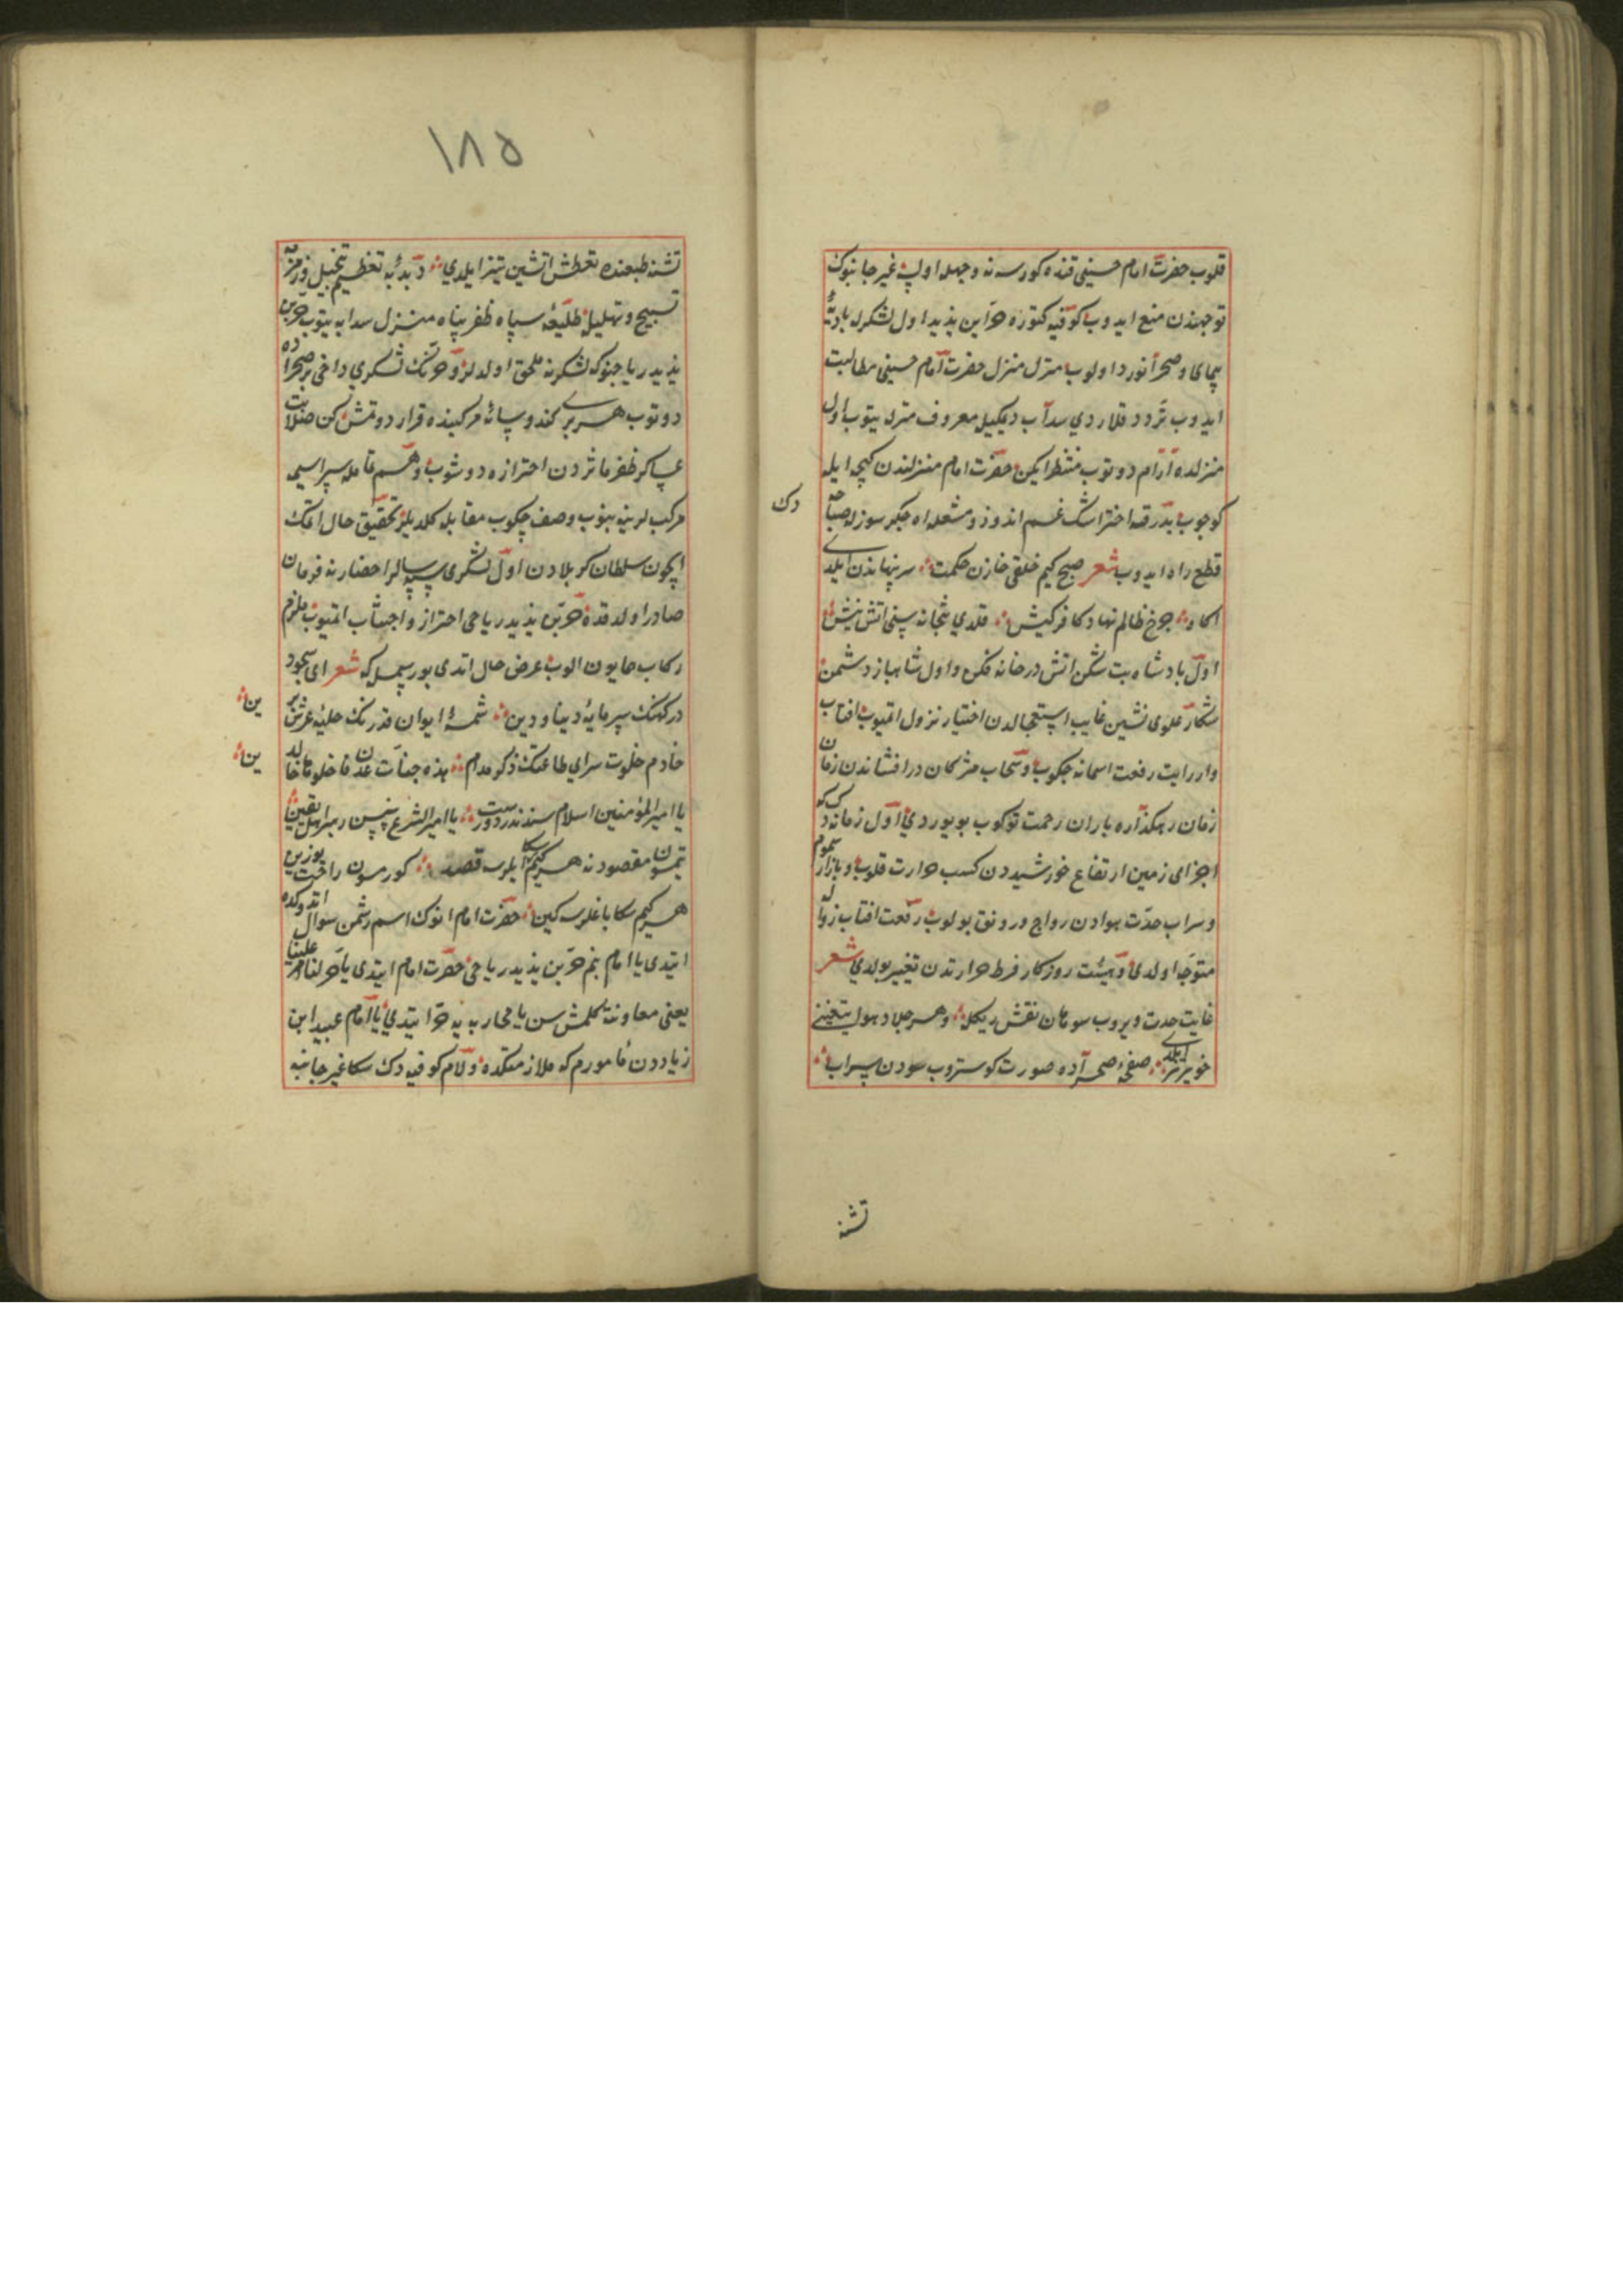 قلوب حضرت امام حسینی قنده کورسه نه وجهله اولب غیر جانبوک
توجهندن منع ایدوب کوفیه کتوره حر ابن یزید اول لشکرله بادیهٔ
پیمای و صحرا نورد اولوب منزل منزل حضرت امام حسینی مطالبت
ایدوب تردد قلاردی سدآب دیمکیله معروف منزله یتوب اول
منزلده آرام دوتوب منتظر ایکن حضرت امام منزلندن کیجه ایله
کوجوب بدرقه اختر اشک غم اندوز و مشعله اه جکر سوزله صباحدک
قطع راه ایدوب شعر صبح کیم خلقی خازن حکمت سر پنهاندن ایلدی
اکاه چرخ ظالم نهاد کافر کیش قلدی بتخانه سینی اتش
اول پادشاه بت شکن اتش در خانه فکن و اول شاهباز دشمن
شکار علوی نشین غایب استعجالدن اختیار نزول اتمیوب افتاب
وار رایت رفعت اسمانه چکوب و سحاب مژکان در افشاندن زمان
زمان رهکذاره باران رحمت توکوب یوریوردی اول زمانه دک که
اجزای زمین ارتفاع خورشیددن کسب حرارت قلوب و بازار سموم
و سراب حدت هوادن رواج و رونق بولوب رفعت افتاب زواله
متوجه اولدی و هیئت روزکار فرط حرارتدن تغییر بولدی شعر
غایت حدت ویروب سوهان نقش ریکله و هر جلاد هول تیغینی
خونریز ایلدی صفحهٔ صحراده صورت کوستروب سودن سراب
تشنه
۱۸۵
تشنه طبعنده تعطش اتشین تیز ایلدی دبدبهٔ تعظیم تبجیل و زمزمهٔ
تسبیح و تهلیل طلیعهٔ سپاه ظفر پناه منزل سدابه یتوب حر بن
یزید ریاحینوک لشکرنه ملحق اولدلر و حرنک لشکری داخی بر صحراده
دوتوب هر بری کندو سایهٔ مرکبنده قرار دوتمش کن صلابت
عساکر ظفر ماثردن احترازه دوشوب و هم تمامله سراسیمه
مرکبلرینه بنوب وصف چکوب مقابله کلدیلر تحقیق حال اتمک
ایچون سلطان کربلادن اول لشکری سپهسالر احضارنه فرمان
صادر اولدقده حر بن یزید ریاحی احتراز و اجتناب اتمیوب ملزم
رکاب همایون الوب عرض حال اتدی بو رسمله که شعر ای سجود
درکهنک سرمایهٔ دنیا و دین شمسهٔ ایوان قدرنک حلیهٔ عرش برین
خادم خلوت سرای طاعتک ذکر مدام هذه جنات عدن فادخلوها خالدین
یا امیر المؤمنین اسلام سندندر درست یا امیر الشرع سنسن رهبر اهل یقین
یتمسون مقصودنه هر کیم سکا ایلرسه قصد کورمسون راحت یوزین
هر کیم سکا باغلرسه کین حضرت امام انوک اسم رسمن سوال اتدوکده
ایتدی یا امام بنم حر بن یزید ریاحی حضرت امام ایتدی یا حر لنا ام علینا
یعنی معاونته کلمشسن یا محاربه یه حر ایتدی یا امام عبید ابن
زیاددن مامورم که ملازمتکده ولام کوفیه دک سکا غیر جانبه